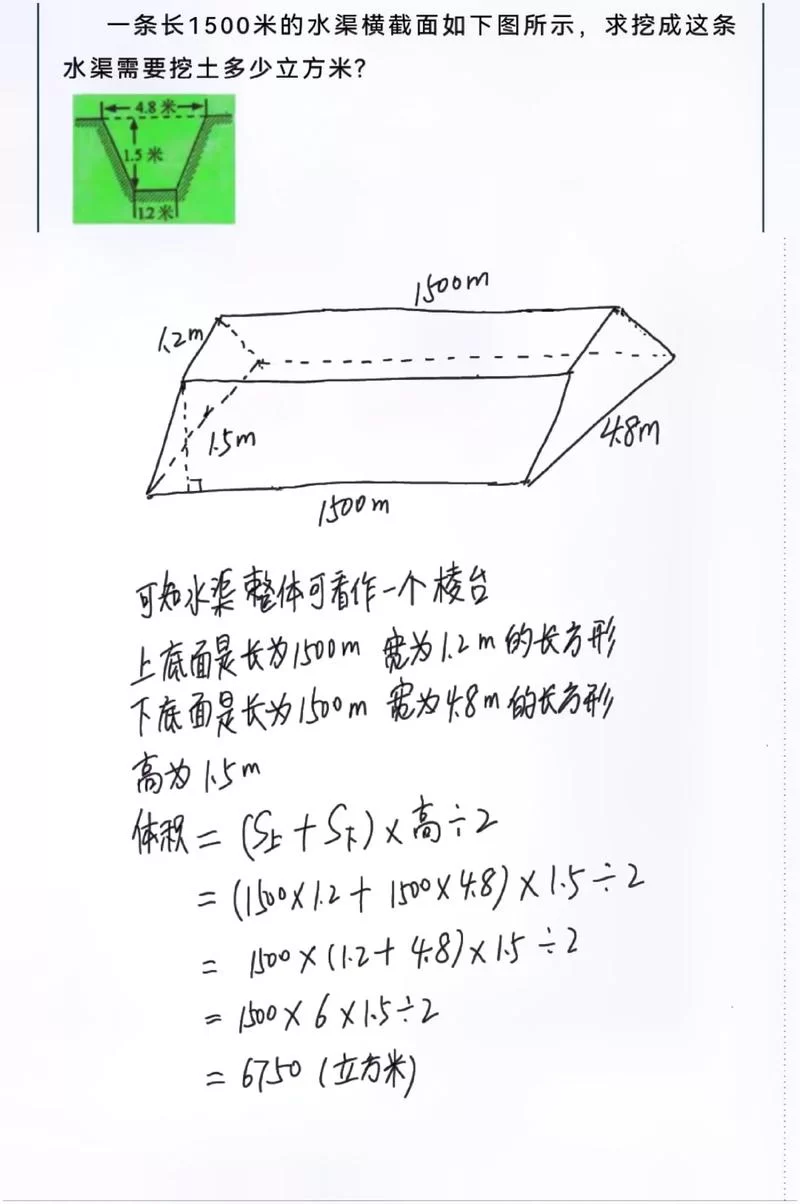 一条长1500米的水渠横截面如下图所示，求挖成这条
水渠需要挖土多少立方米？
4.8米
1.5米
12米
1500m
1.2m
1.5m
4.8m
1500m
可知水渠整体可看作一个棱台
上底面是长为1500m 宽为1.2m的长方形
下底面是长为1500m 宽为4.8m的长方形
高为1.5m
体积=(S上+S下)×高÷2
=(1500×1.2+1500×4.8)×1.5÷2
= 1500×(1.2+4.8)×1.5÷2
=1500×6×1.5÷2
=6750(立方米)